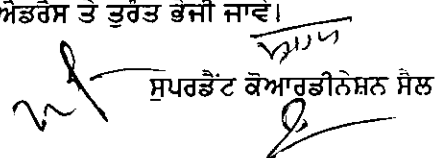 ਐਡਰੈਸ ਤੇ ਤੁਰੰਤ ਭੇਜੀ ਜਾਵੇ।
ਸੁਪਰਡੈਂਟ ਕੋਆਰਡੀਨੇਸ਼ਨ ਸੈਲ